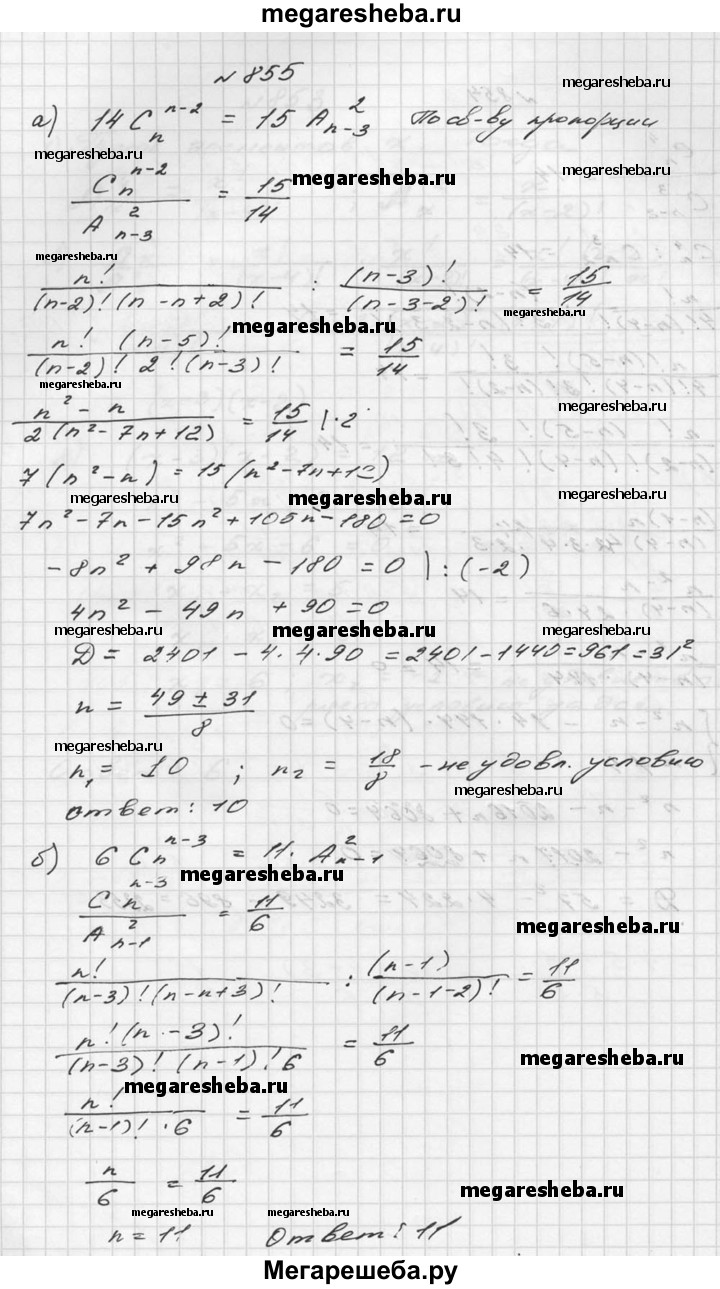 megaresheba.ru
№ 855
megaresheba.ru
а) 14 C_n^{n-2} = 15 A_{n-3}^2 По св-ву пропорции
megaresheba.ru
megaresheba.ru
C_n^{n-2} / A_{n-3}^2 = 15/14
megaresheba.ru
megaresheba.ru
n! / (n-2)!(n-n+2)! : (n-3)! / (n-3-2)! = 15/14
megaresheba.ru
megaresheba.ru
n! (n-5)! / (n-2)! 2! (n-3)! = 15/14
megaresheba.ru
n² - n / 2(n²-7n+12) = 15/14 |·2
megaresheba.ru
7(n²-n) = 15(n²-7n+12)
megaresheba.ru
megaresheba.ru
megaresheba.ru
7n²-7n-15n²+105n-180=0
-8n² + 98n - 180 = 0 | : (-2)
4n² - 49n + 90 = 0
megaresheba.ru
megaresheba.ru
megaresheba.ru
Д = 2401 - 4·4·90 = 2401-1440=961=31²
n = 49 ± 31 / 8
megaresheba.ru
n₁ = 10 ; n₂ = 18/8 - не удовл. условию
megaresheba.ru
ответ: 10
б) 6 C_n^{n-3} = 11· A_{n-1}^2
megaresheba.ru
C_n^{n-3} / A_{n-1}^2 = 11/6
megaresheba.ru
n! / (n-3)!(n-n+3)! : (n-1) / (n-1-2)! = 11/6
n!(n-3)! / (n-3)! (n-1)! 6 = 11/6
megaresheba.ru
megaresheba.ru
n! / (n-1)! · 6 = 11/6
n/6 = 11/6
megaresheba.ru
megaresheba.ru
megaresheba.ru
n = 11 Ответ: 11
Мегарешеба.ру